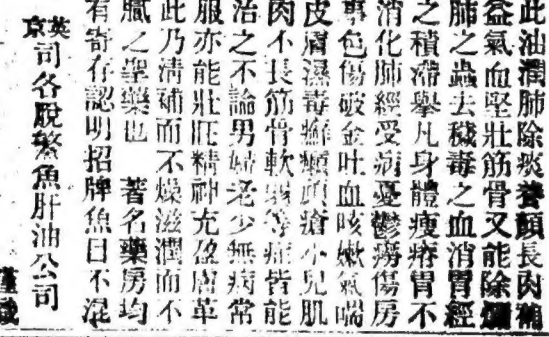 此油潤肺除痰養顏長肉補
益氣血堅壯筋骨又能除爛
肺之蟲去穢毒之血消胃經
之積滯舉凡身體瘦瘠胃不
消化肺經受病憂鬱癆傷房
專包傷破金吐血咳嗽氣喘
皮膚濕毒癬癩頭瘡小兒肌
肉不長筋骨軟弱等症皆能
治之不論男婦老少無病常
服亦能壯旺精神充盈膚革
此乃清補而不燥滋潤而不
膩之聖藥也 著名藥房均
有寄存認明招牌魚目不混
英京司各脫繁魚肝油公司
謹識